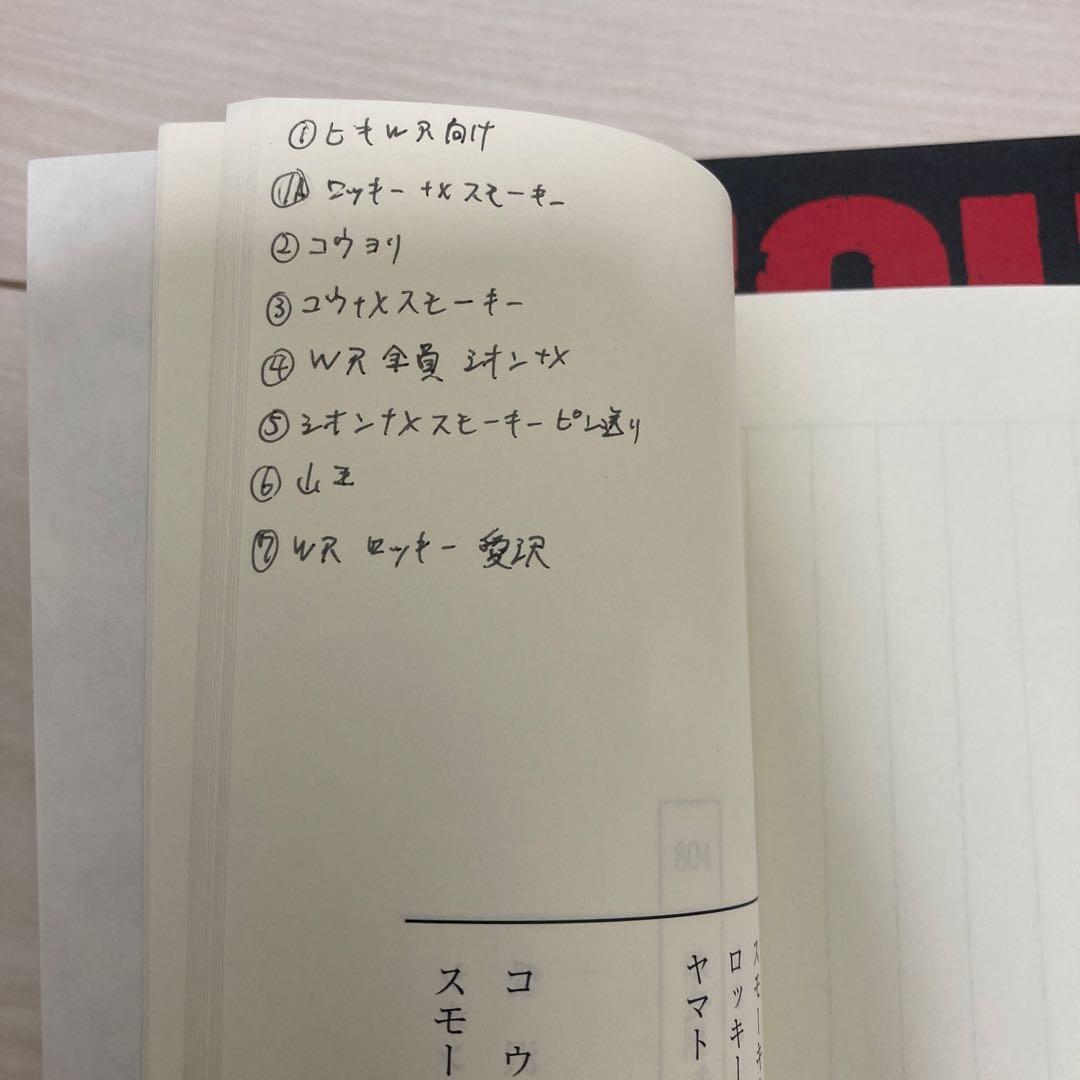 ①ヒキWR向け
①A ロッキーナメスモーキー
②コウヨリ
③コウナメスモーキー
④WR全員 シオンナメ
⑤シオンナメスモーキーピン送り
⑥山王
⑦WR ロッキー 愛沢
108
スモーキ
ロッキー
ヤマト
コウ
スモー